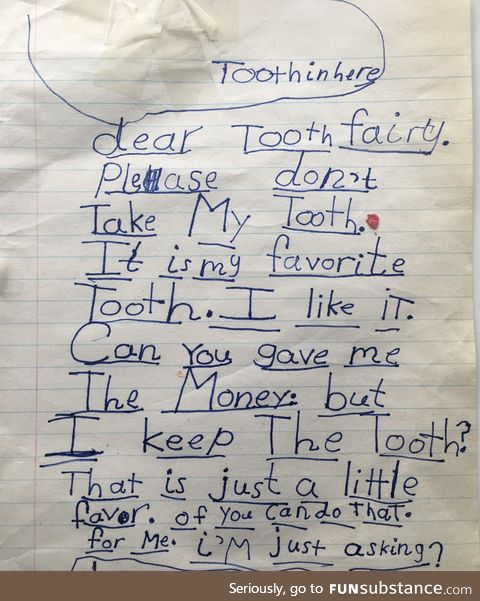 Tooth in here
dear Tooth fairy.
Please don't
Take My Tooth.
It is my favorite
Tooth. I like it.
Can You gave me
The Money. but
I keep The Tooth?
That is just a little
favor. of you can do that.
for Me. i'M just asking?
Seriously, go to FUNsubstance.com